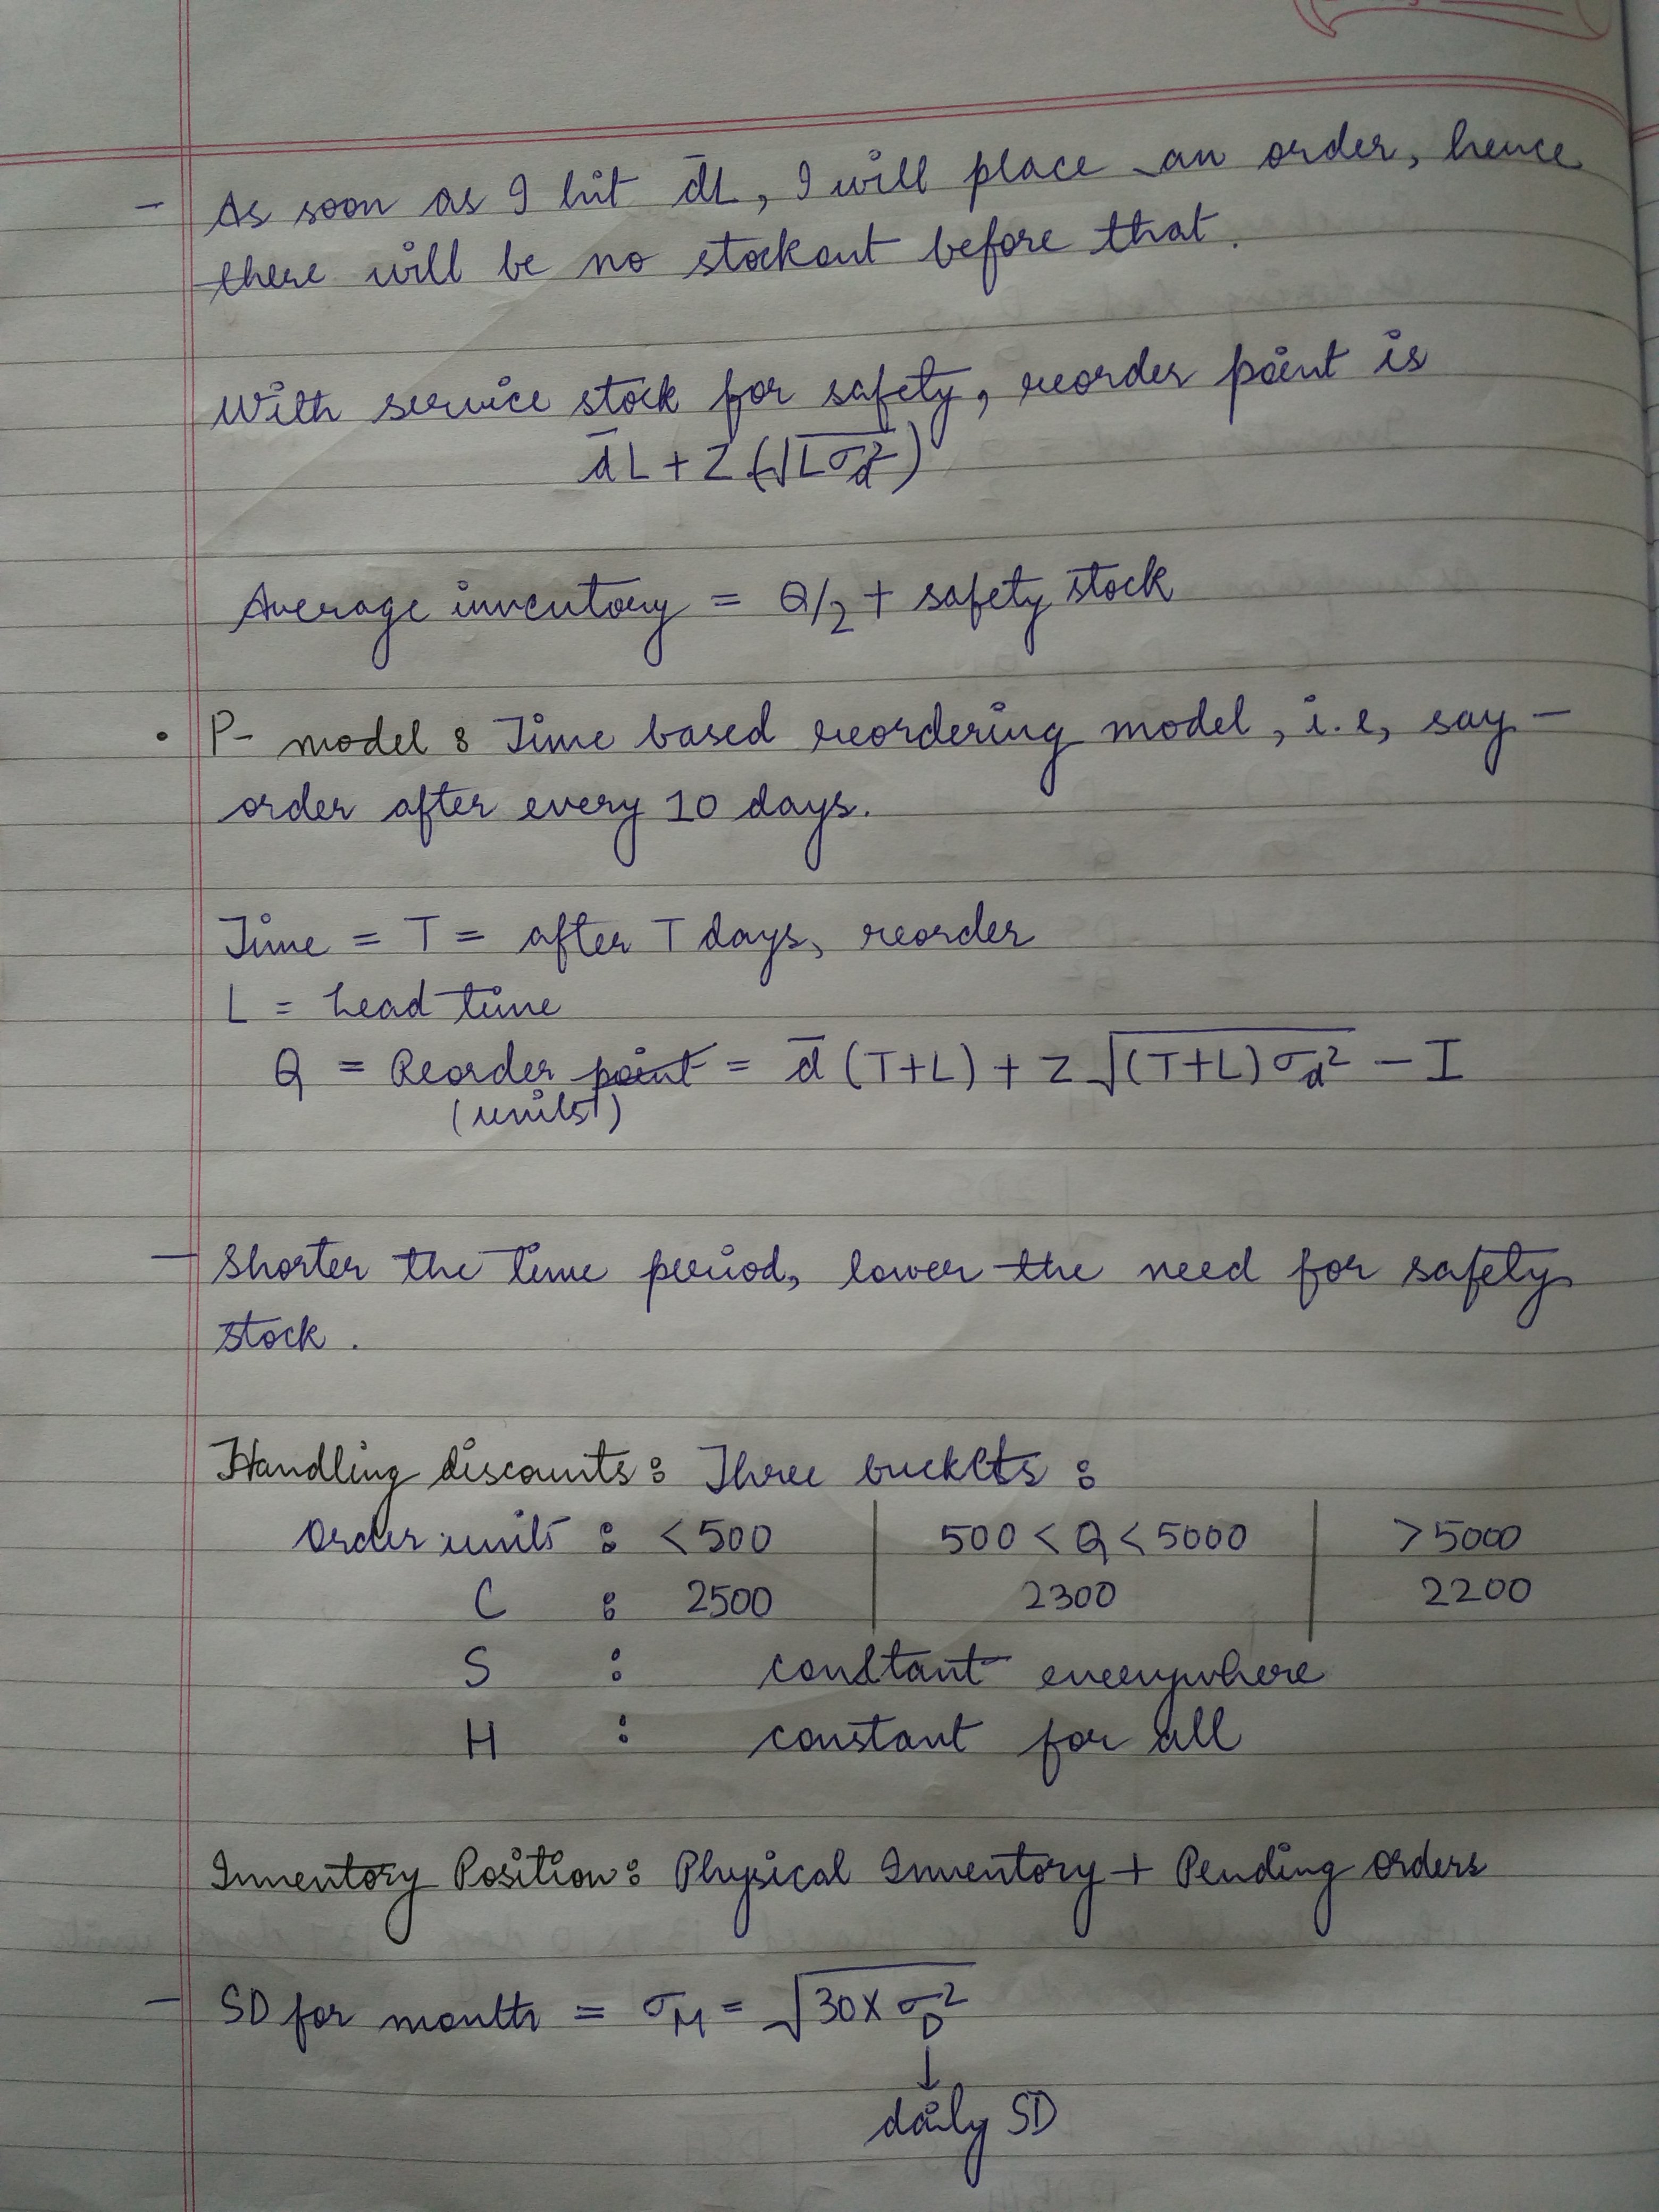 - As soon as I hit d̄L, I will place an order, hence
there will be no stockout before that.
With service stock for safety, reorder point is
d̄L + Z (√Lσd²)
Average inventory = Q/2 + safety stock
• P- model : Time based reordering model, i.e, say -
order after every 10 days.
Time = T = after T days, reorder
L = Lead time
Q = Reorder point = d̄ (T+L) + z √(T+L)σd² - I
(units)
- Shorter the time period, lower the need for safety
stock.
Handling discounts : Three buckets :
Order units : < 500 | 500 < Q < 5000 | > 5000
C : 2500 | 2300 | 2200
S : constant everywhere
H : constant for all
Inventory Position : Physical Inventory + Pending orders
- SD for month = σM = √30 X σD²
↓
daily SD